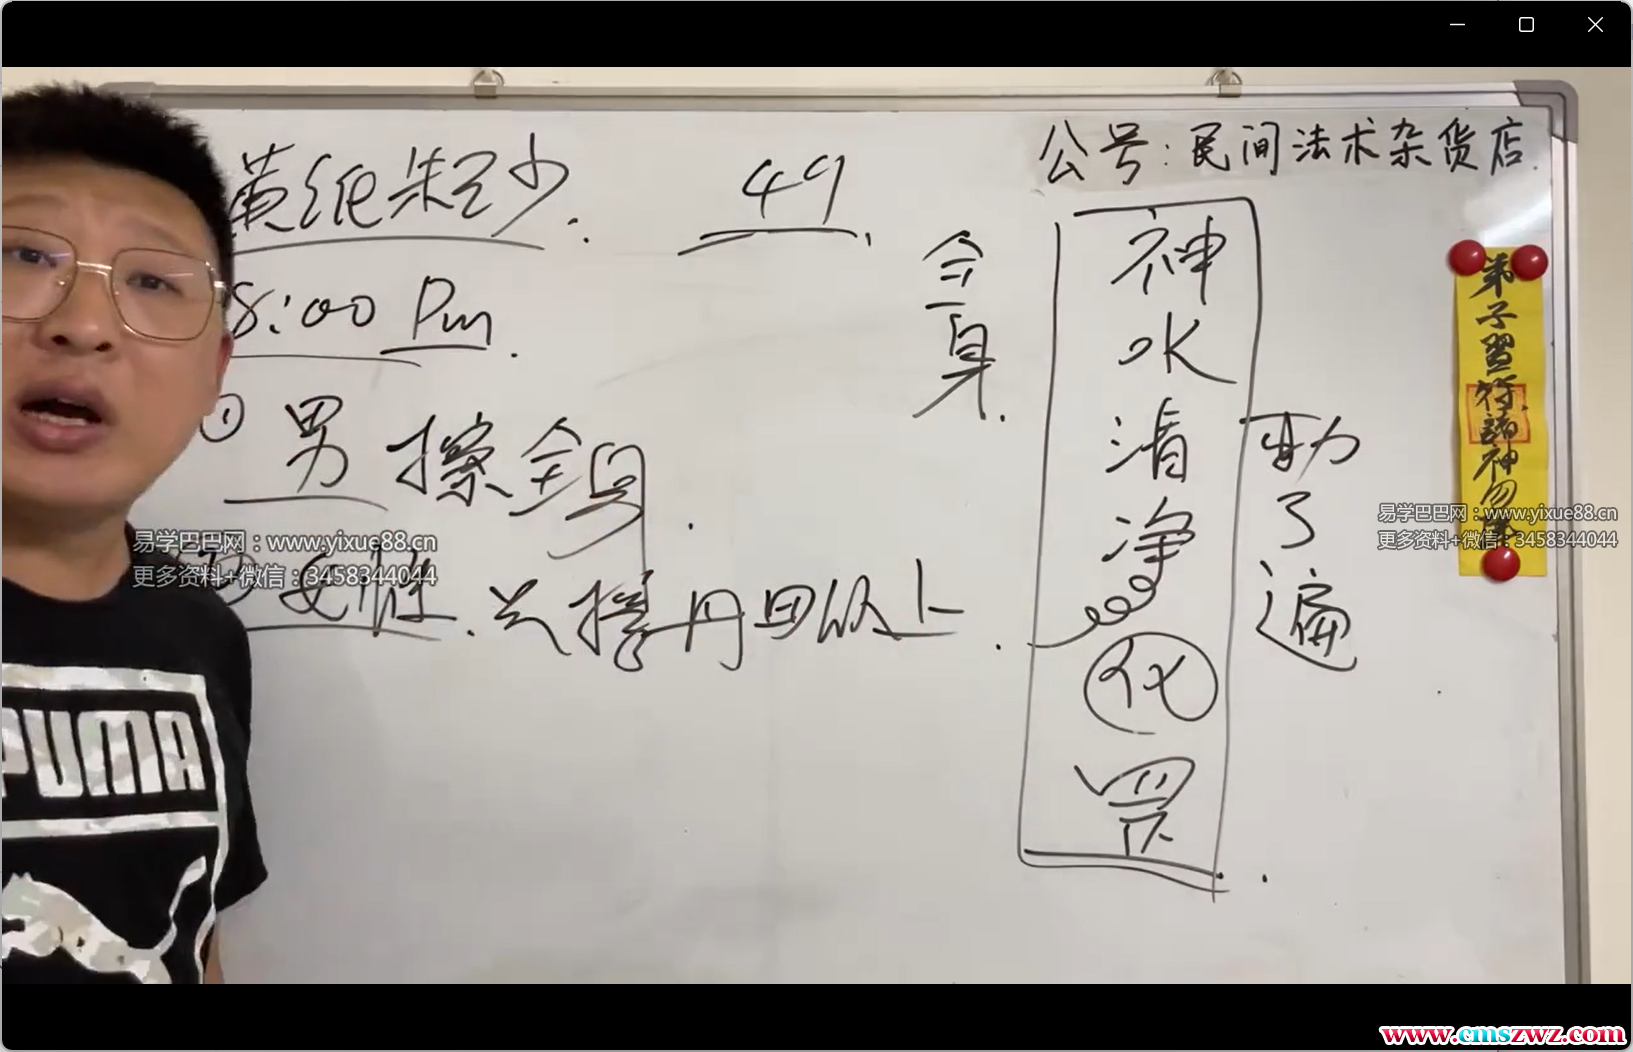 公号:民间法术杂货店.
黄纸朱砂.
49.
8:00 Pm.
① 男 擦全身.
② 女性. 只擦丹田以上.
全身.
神水清净
化
罡
了遍
弟子習符諸神勿
PUMA
易学巴巴网:www.yixue88.cn
更多资料+微信:3458344044
易学巴巴网:www.yixue88.cn
更多资料+微信:3458344044
www.cmszwz.com